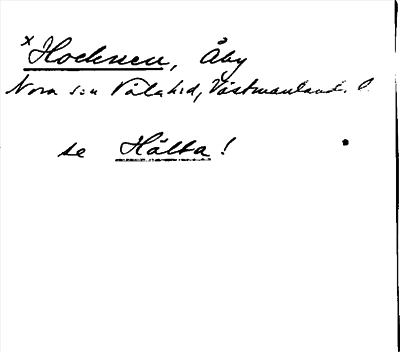 x Hocknen, Åby
Nora sn Våla hd, Västmanland.
se Hålta!